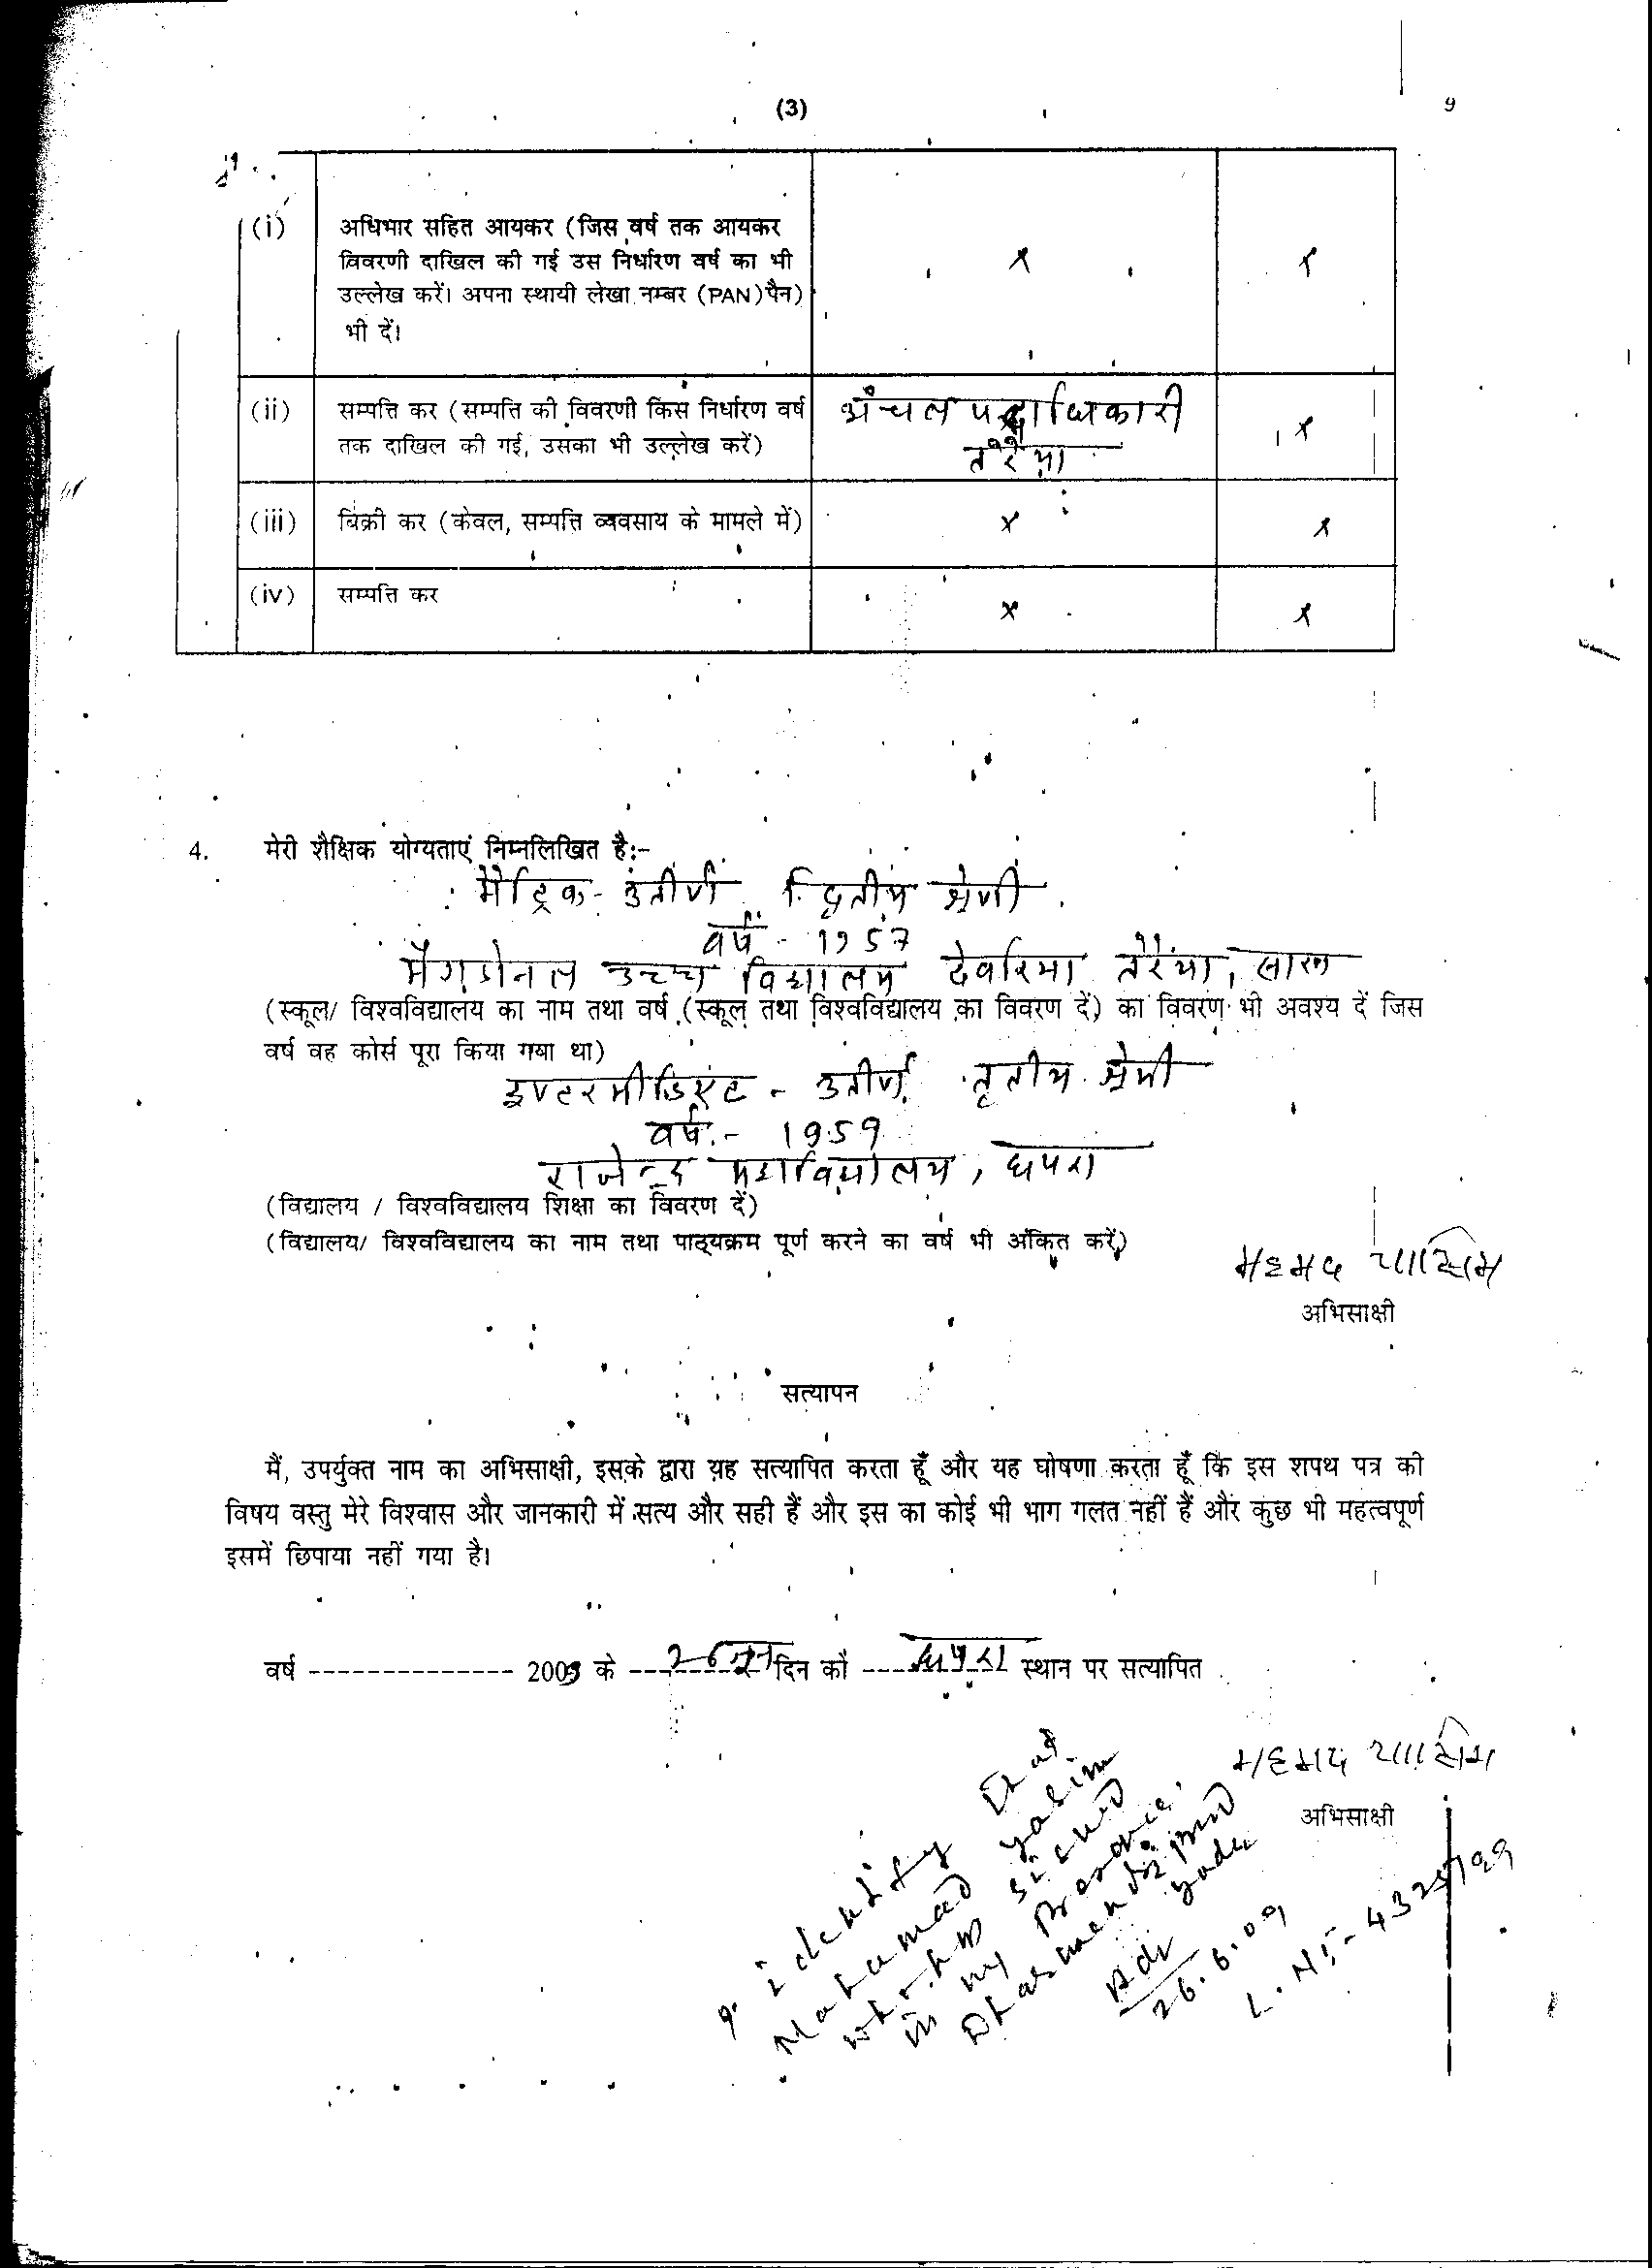 (3)
9
(i) अधिभार सहित आयकर (जिस वर्ष तक आयकर
विवरणी दाखिल की गई उस निर्धारण वर्ष का भी
उल्लेख करें। अपना स्थायी लेखा नम्बर (PAN)पैन)
भी दें।
x x
(ii) सम्पत्ति कर (सम्पत्ति की विवरणी किस निर्धारण वर्ष
तक दाखिल की गई, उसका भी उल्लेख करें)
अंचल पदाधिकारी
तरैया
x
(iii) बिक्री कर (केवल, सम्पत्ति व्यवसाय के मामले में) x x
(iv) सम्पत्ति कर x x
4. मेरी शैक्षिक योग्यताएं निम्नलिखित है:-
मैट्रिक - उतीर्ण द्वितीय श्रेणी
वर्ष - 1957
उच्च विद्यालय देवरिया तरैया, सारन
(स्कूल/ विश्वविद्यालय का नाम तथा वर्ष (स्कूल तथा विश्वविद्यालय का विवरण दें) का विवरण भी अवश्य दें जिस
वर्ष वह कोर्स पूरा किया गया था)
इण्टरमीडिएट - उतीर्ण तृतीय श्रेणी
वर्ष - 1959
राजेन्द्र महाविद्यालय, छपरा
(विद्यालय / विश्वविद्यालय शिक्षा का विवरण दें)
(विद्यालय/ विश्वविद्यालय का नाम तथा पाठ्यक्रम पूर्ण करने का वर्ष भी अंकित करें)
महमद यासिम
अभिसाक्षी
सत्यापन
मैं, उपर्युक्त नाम का अभिसाक्षी, इसके द्वारा यह सत्यापित करता हूँ और यह घोषणा करता हूँ कि इस शपथ पत्र की
विषय वस्तु मेरे विश्वास और जानकारी में सत्य और सही हैं और इस का कोई भी भाग गलत नहीं हैं और कुछ भी महत्वपूर्ण
इसमें छिपाया नहीं गया है।
वर्ष -------------- 2009 के --- 26 जून दिन को --- छपरा --- स्थान पर सत्यापित
महमद यासिम
अभिसाक्षी
I identify that
Mahamad yasim
who has signed
in my Presence.
Adv
26.6.09